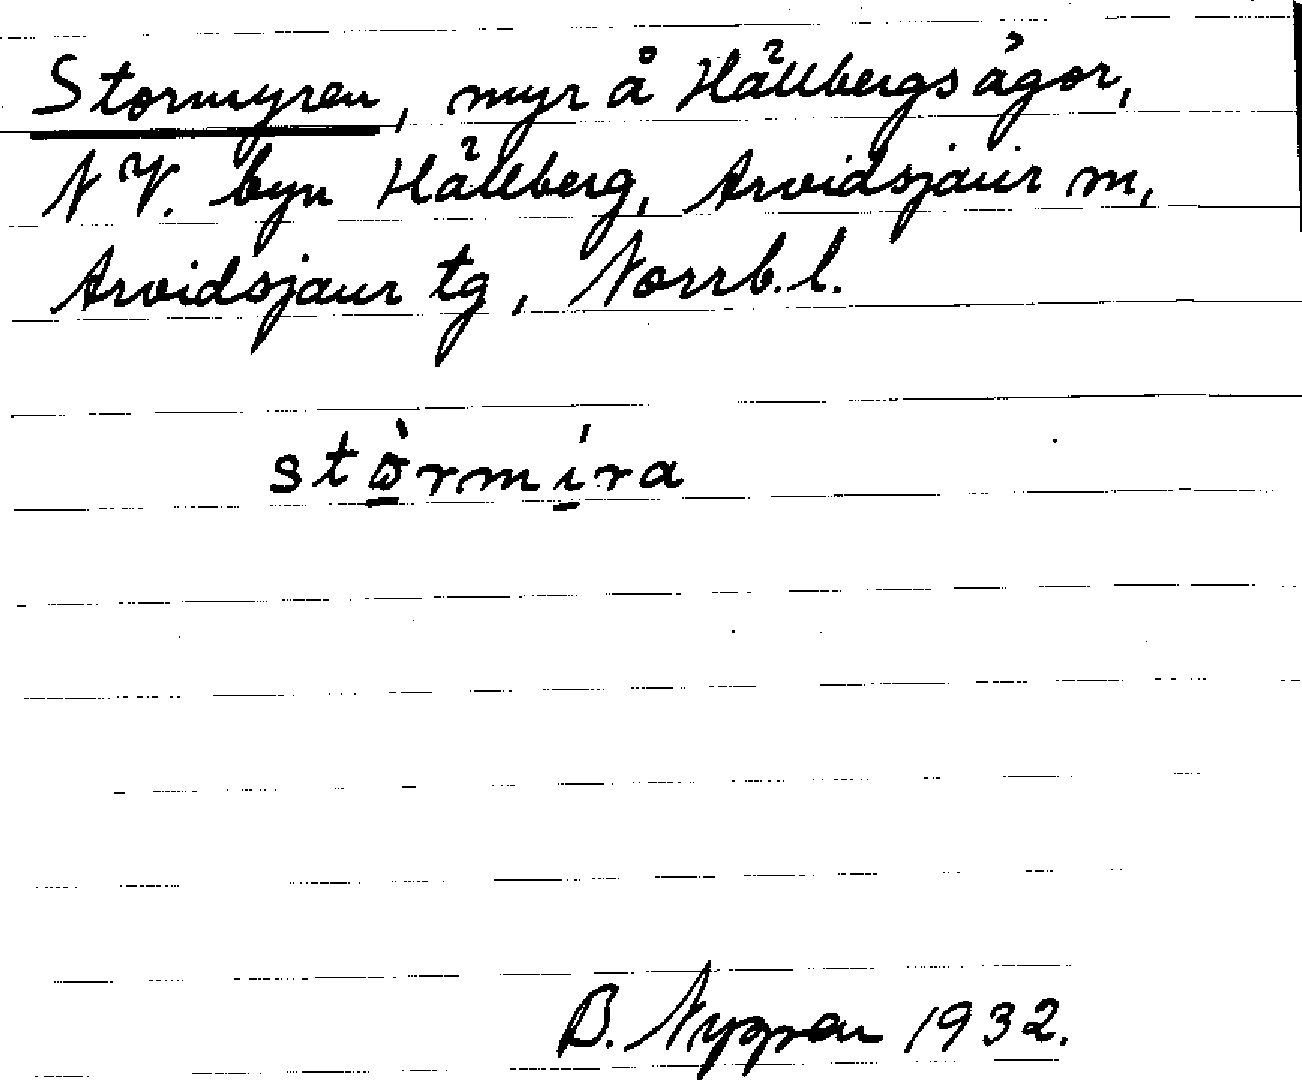 Stormyren, myr å Hällbergs ägor,
NV. byn Hällberg, Arvidsjaur m,
Arvidsjaur tg, Norrb. l.
stòrmíra
B. 1932.